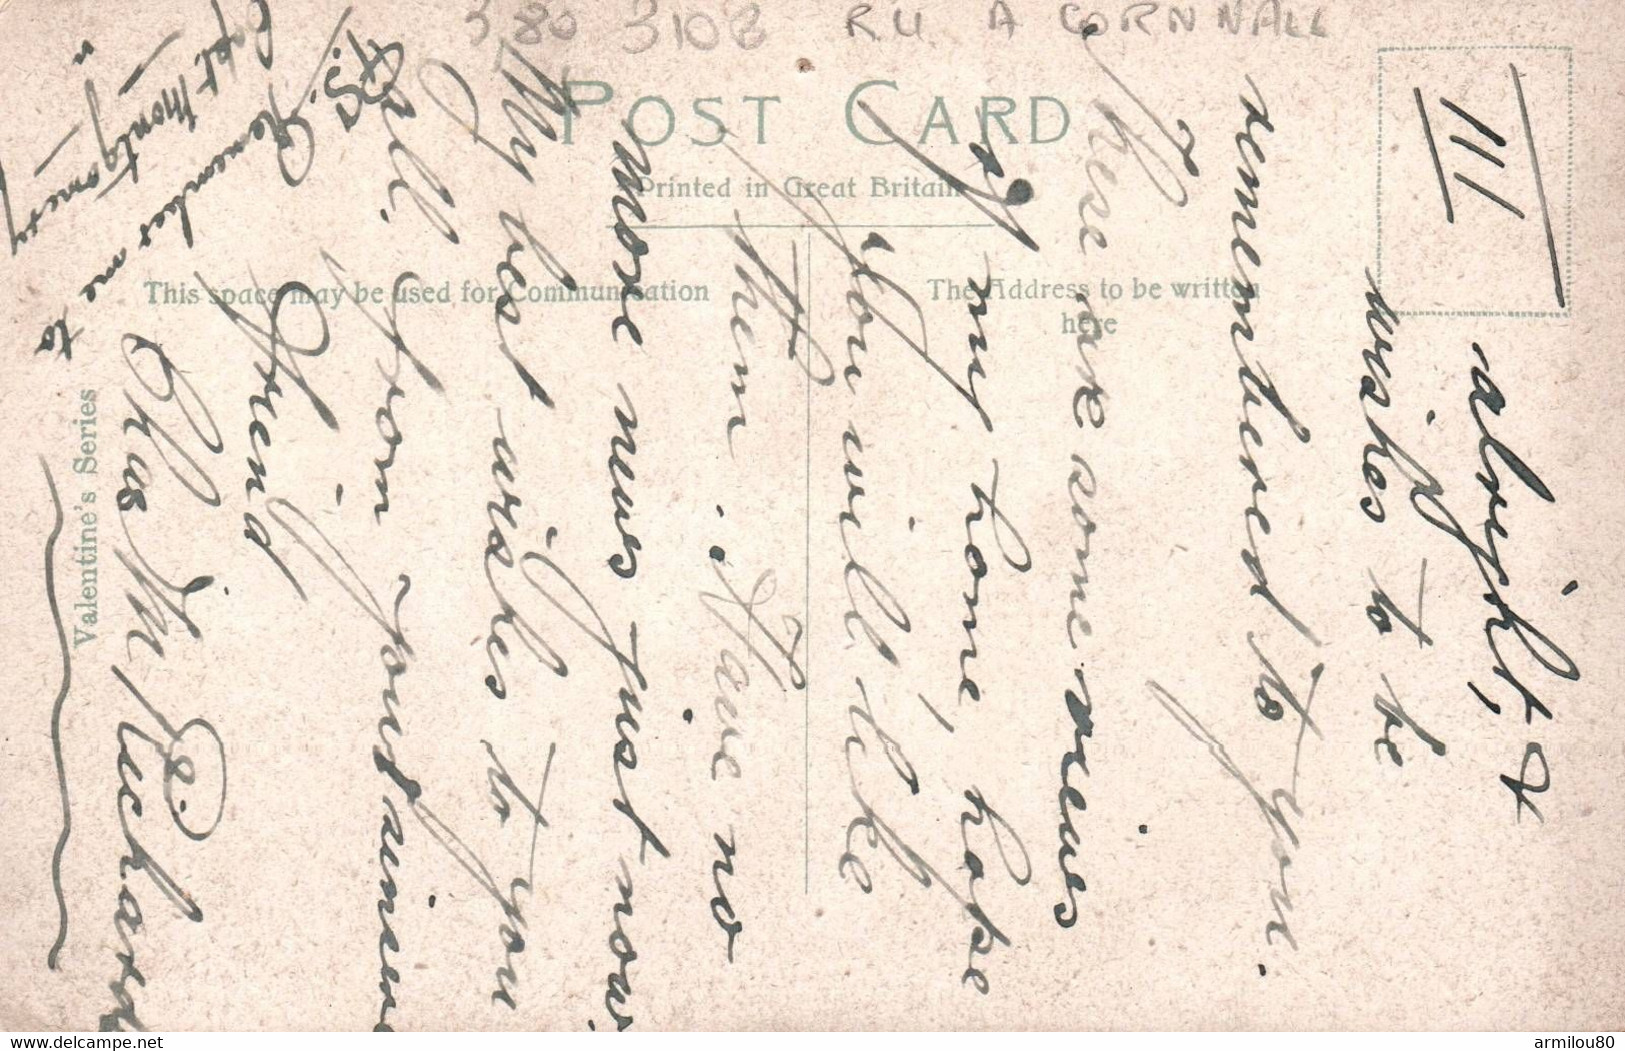 380 3108 R.U. A CORNWALL
POST CARD
Printed in Great Britain
This space may be used for Communication
The Address to be written
here
Valentine's Series
III
alright, &
wishes to be
remembered to you.
These are some views
of my home, hope
you will like
them. Have no
more news just now
My best wishes to you
all. From your sincere
Friend
Chas M Richards
P.S. Remember me to
Capt. Montgomery
delcampe.net
armilou80